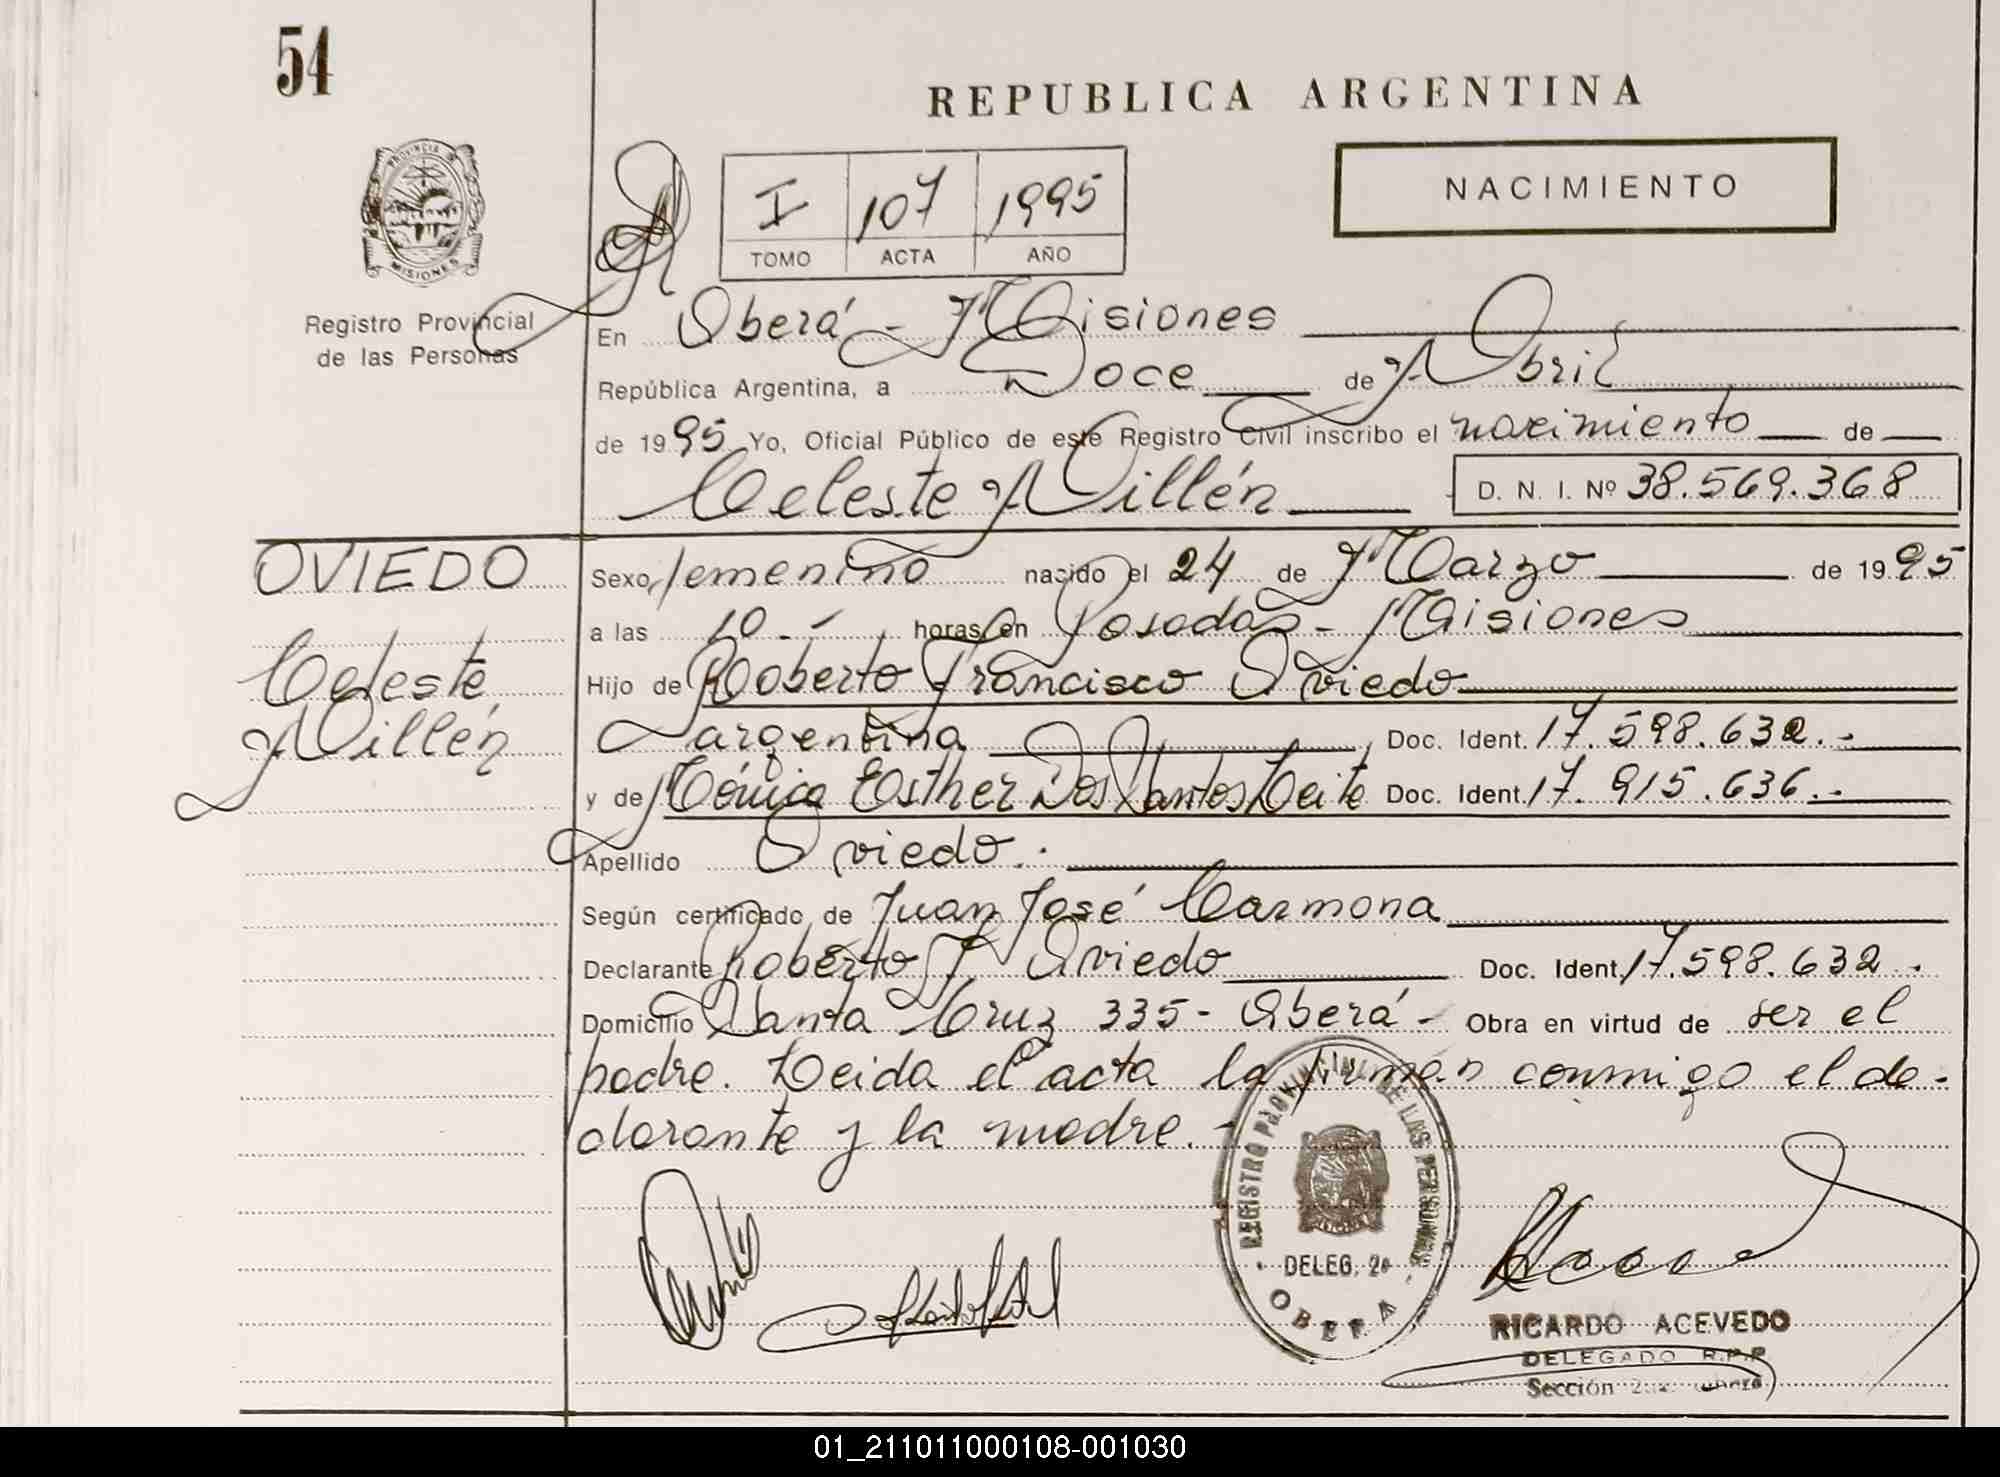 54
REPUBLICA ARGENTINA
PROVINCIA D
MISIONES
Registro Provincial
de las Personas
I 107 1995
TOMO ACTA AÑO
NACIMIENTO
En Oberá - Misiones
República Argentina, a Doce de Abril
de 1995 Yo, Oficial Público de este Registro Civil inscribo el nacimiento de
Celeste Aillén D. N. I. Nº 38.569.368
OVIEDO
Celeste
Aillén
Sexo femenino nacido el 24 de Marzo de 1995
a las 10.- horas en Posadas - Misiones
Hijo de Roberto Francisco Oviedo
argentina, Doc. Ident. 17.598.632.-
y de Mónica Esther Dos Santos Leite Doc. Ident. 17.915.636.-
Apellido Oviedo.-
Según certificado de Juan José Carmona
Declarante Roberto F Oviedo Doc. Ident. 17.598.632.
Domicilio Santa Cruz 335 - Oberá - Obra en virtud de ser el
padre. Leida el acta la firman conmigo el de-
clarante y la madre.-
REGISTRO PROVINCIAL DE LAS PERSONAS
DELEG. 2a
OBERA
RICARDO ACEVEDO
DELEGADO R.P.P
Sección
01_211011000108-001030